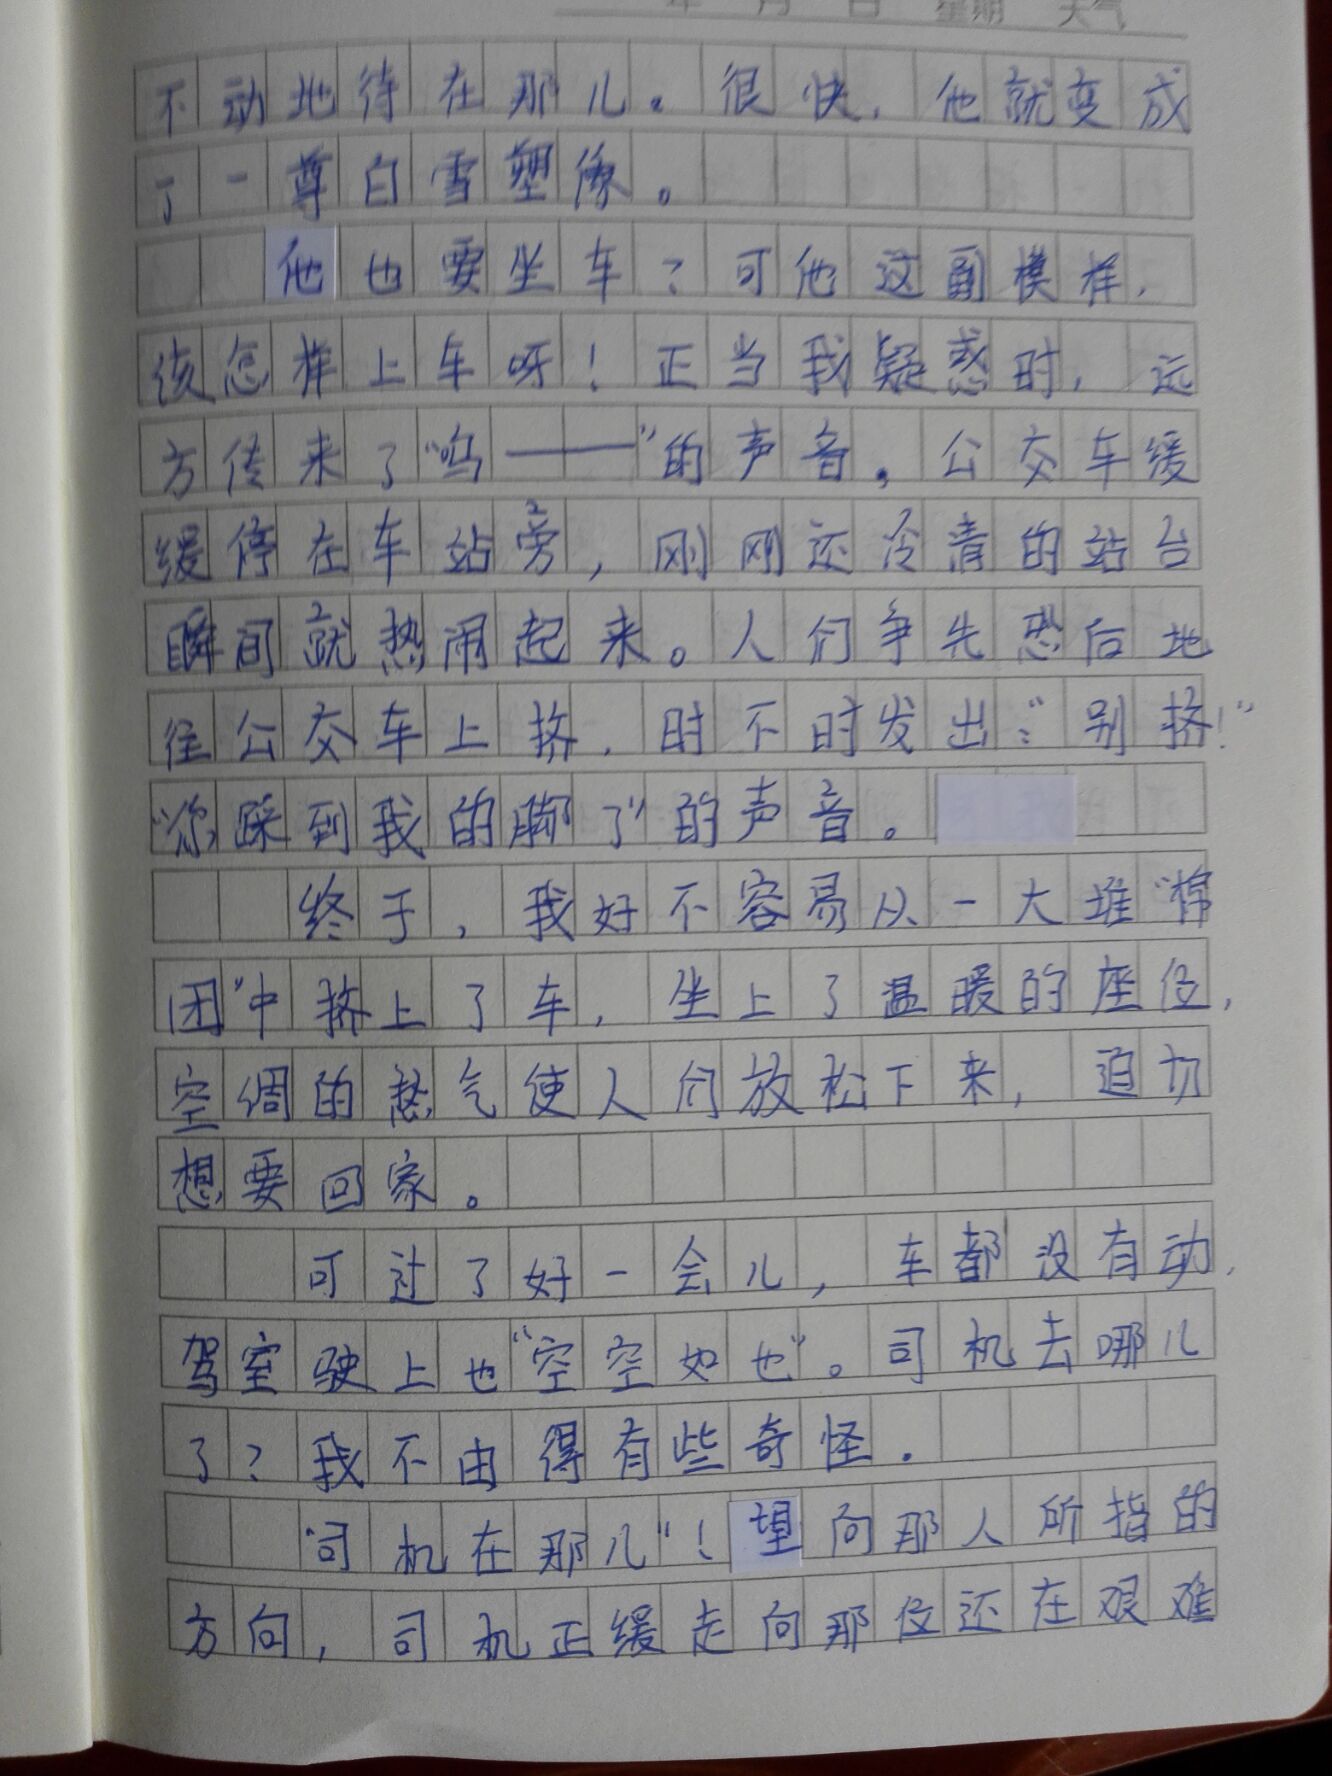 年 月 日 星期 天气
不动地待在那儿。很快，他就变成
了一尊白雪塑像。
他也要坐车？可他这副模样，
该怎样上车呀！正当我疑惑时，远
方传来了“呜——”的声音。公交车缓
缓停在车站旁，刚刚还冷清的站台
瞬间就热闹起来。人们争先恐后地
往公交车上挤，时不时发出：“别挤！”
“你踩到我的脚了”的声音。
终于，我好不容易从一大堆“棉
团”中挤上了车，坐上了温暖的座位，
空调的热气使人们放松下来，迫切
想要回家。
可过了好一会儿，车都没有动，
驾室驶上也“空空如也”。司机去哪儿
了？我不由得有些奇怪。
“司机在那儿”！望向那人所指的
方向，司机正缓走向那位还在艰难